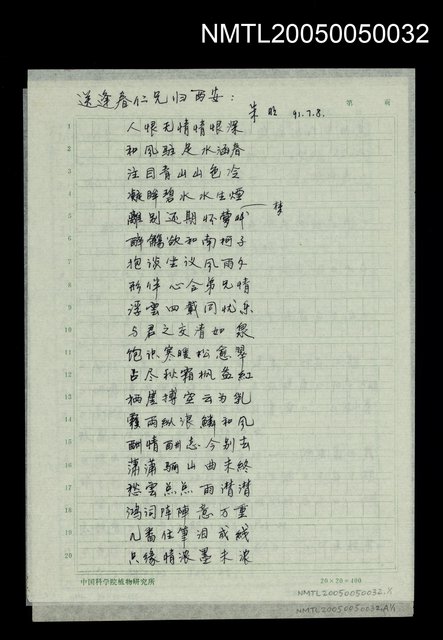 NMTL20050050032
送逢春仁兄归西安：
朱 91.7.8.
第 页
1 人恨无情情恨深
2 和风驻足水涵春
3 注目青山山色冷
4 凝眸碧水水生煙
5 離别还期怀梦
6 醉觴欲和南柯子
7 抱谈尝议风雨夕
8 形伴心合弟兄情
9 浮雲四載同忧乐
10 与君之交清如泉
11 饱识寒暖松愈翠
12 占尽秋霜枫益紅
13 栖崖搏空云为乳
14 雨纵浪鳞和风
15 酬情酬志今别去
16 潇潇骊山曲未終
17 愁雲点点雨潸潸
18 鴻词阵陣意万重
19 几番住筆泪成线
20 只缘情浓墨未浓
中国科学院植物研究所
20×20=400
NMTL20050050032.1/1
NMTL20050050032.A/1